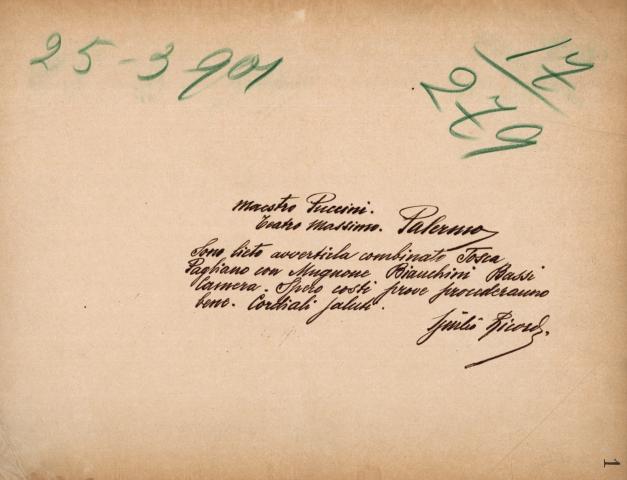 25-3-901
17/279
Maestro Puccini.
Teatro Massimo. Palermo
Sono lieto avvertirla combinato Tosca
Pagliano con Mugnone Bianchini Bassi
Camera. Spero costì prove procederanno
bene. Cordiali saluti.
Giulio Ricordi.
1